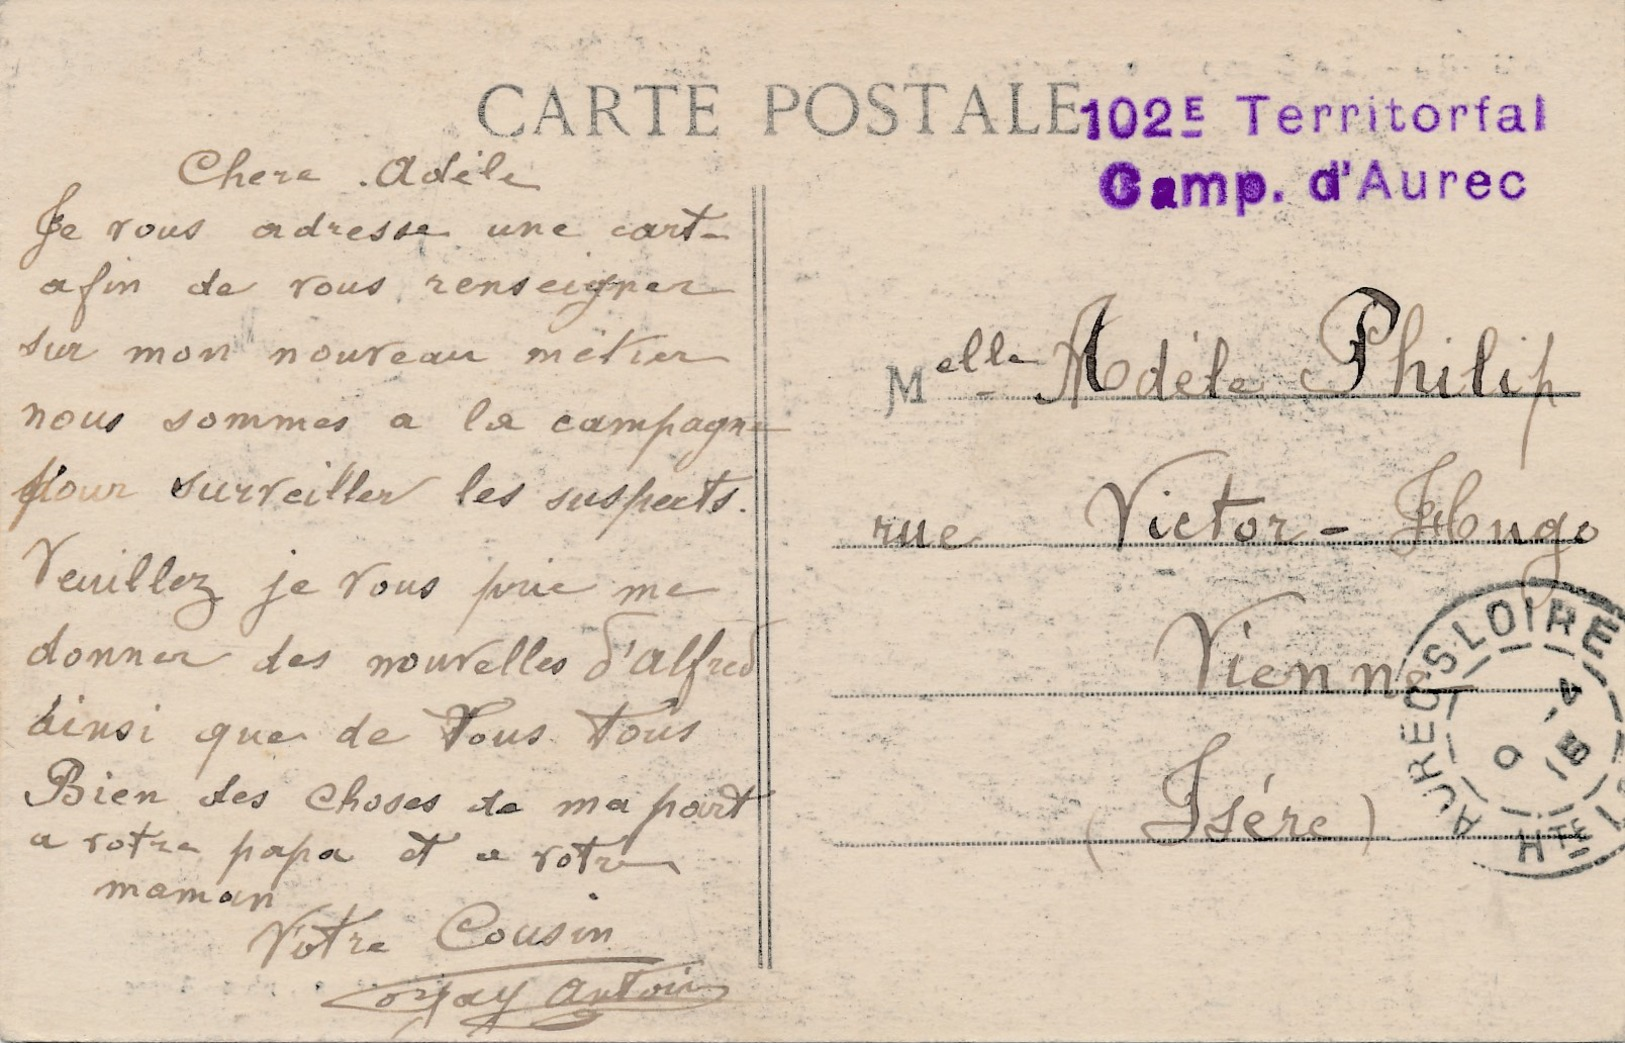 CARTE POSTALE
102E Territorfal
Camp. d'Aurec
Chere Adèle
Je vous adresse une cart
afin de vous renseigner
sur mon nouveau métier
nous sommes a la campagne
pour surveiller les suspects.
Veuillez je vous prie me
donner des nouvelles d'alfred
ainsi que de Vous Tous
Bien des choses de ma part
a votre papa et a votre
maman
Votre Cousin
Antoin
Melle Adèle Philip
rue Victor-Hugo
Vienne
(Isére)
AUREC S LOIRE
HTE